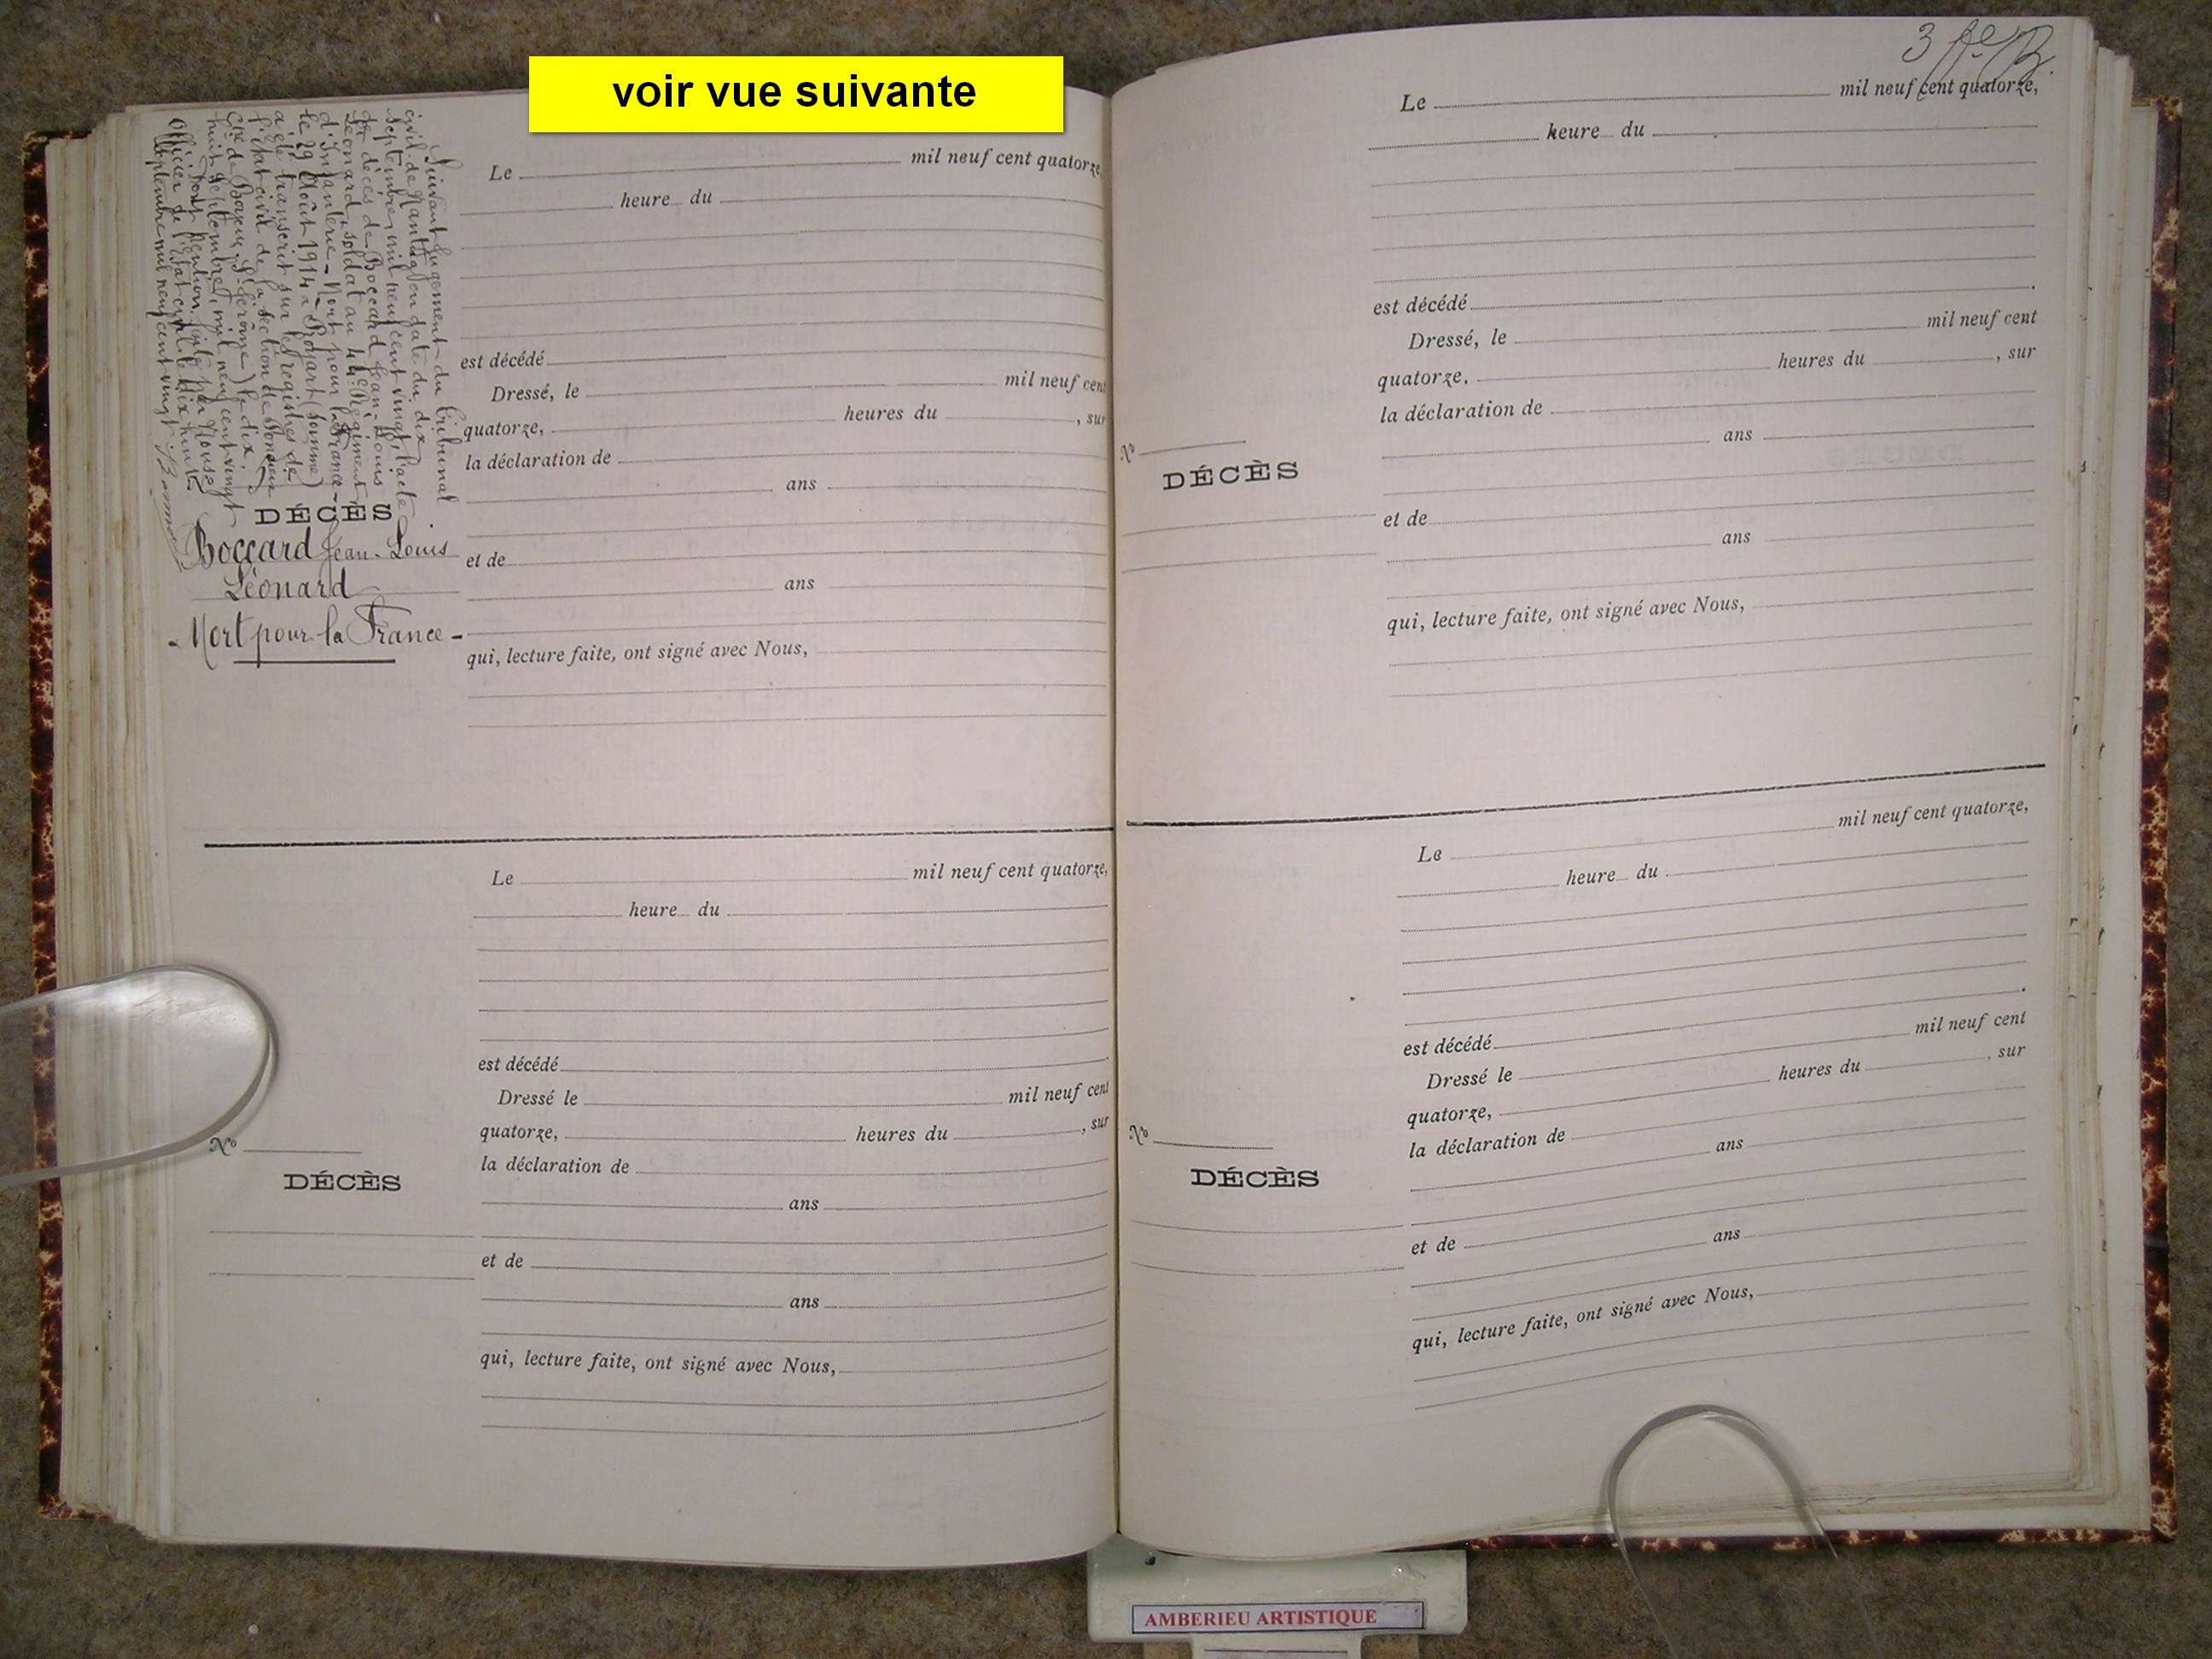 voir vue suivante
Suivant Jugement du Tribunal
civil de Nantua en date du dix
septembre mil neuf cent vingt l'acte
de décès de Boccard Jean-Louis
Léonard, soldat au 44e Régiment
d'Infanterie - Mort pour la France -
le 29 Août 1914 à Proyart (Somme)
a été transcrit sur les registres de
l'état civil de la section de
cne de Boyeux St Jérôme) le dix
huit septembre mil neuf cent vingt
Dont mention faite par Nous
officier de l'état civil le dix huit
septembre mil neuf cent vingt.
DÉCÈS
Boccard Jean-Louis
Léonard
- Mort pour la France -
Le mil neuf cent quatorze,
heure du
est décédé
Dressé, le mil neuf cent
quatorze, heures du , sur
la déclaration de
ans
et de
ans
qui, lecture faite, ont signé avec Nous,
Le mil neuf cent quatorze,
heure du
est décédé
Dressé le mil neuf cent
quatorze, heures du , sur
No
la déclaration de
DÉCÈS
ans
et de
ans
qui, lecture faite, ont signé avec Nous,
3
Le mil neuf cent quatorze,
heure du
est décédé
Dressé, le mil neuf cent
quatorze, heures du , sur
la déclaration de
No
ans
DÉCÈS
et de
ans
qui, lecture faite, ont signé avec Nous,
Le mil neuf cent quatorze,
heure du
est décédé
Dressé le mil neuf cent
quatorze, heures du , sur
No
la déclaration de
ans
DÉCÈS
et de
ans
qui, lecture faite, ont signé avec Nous,
AMBERIEU ARTISTIQUE